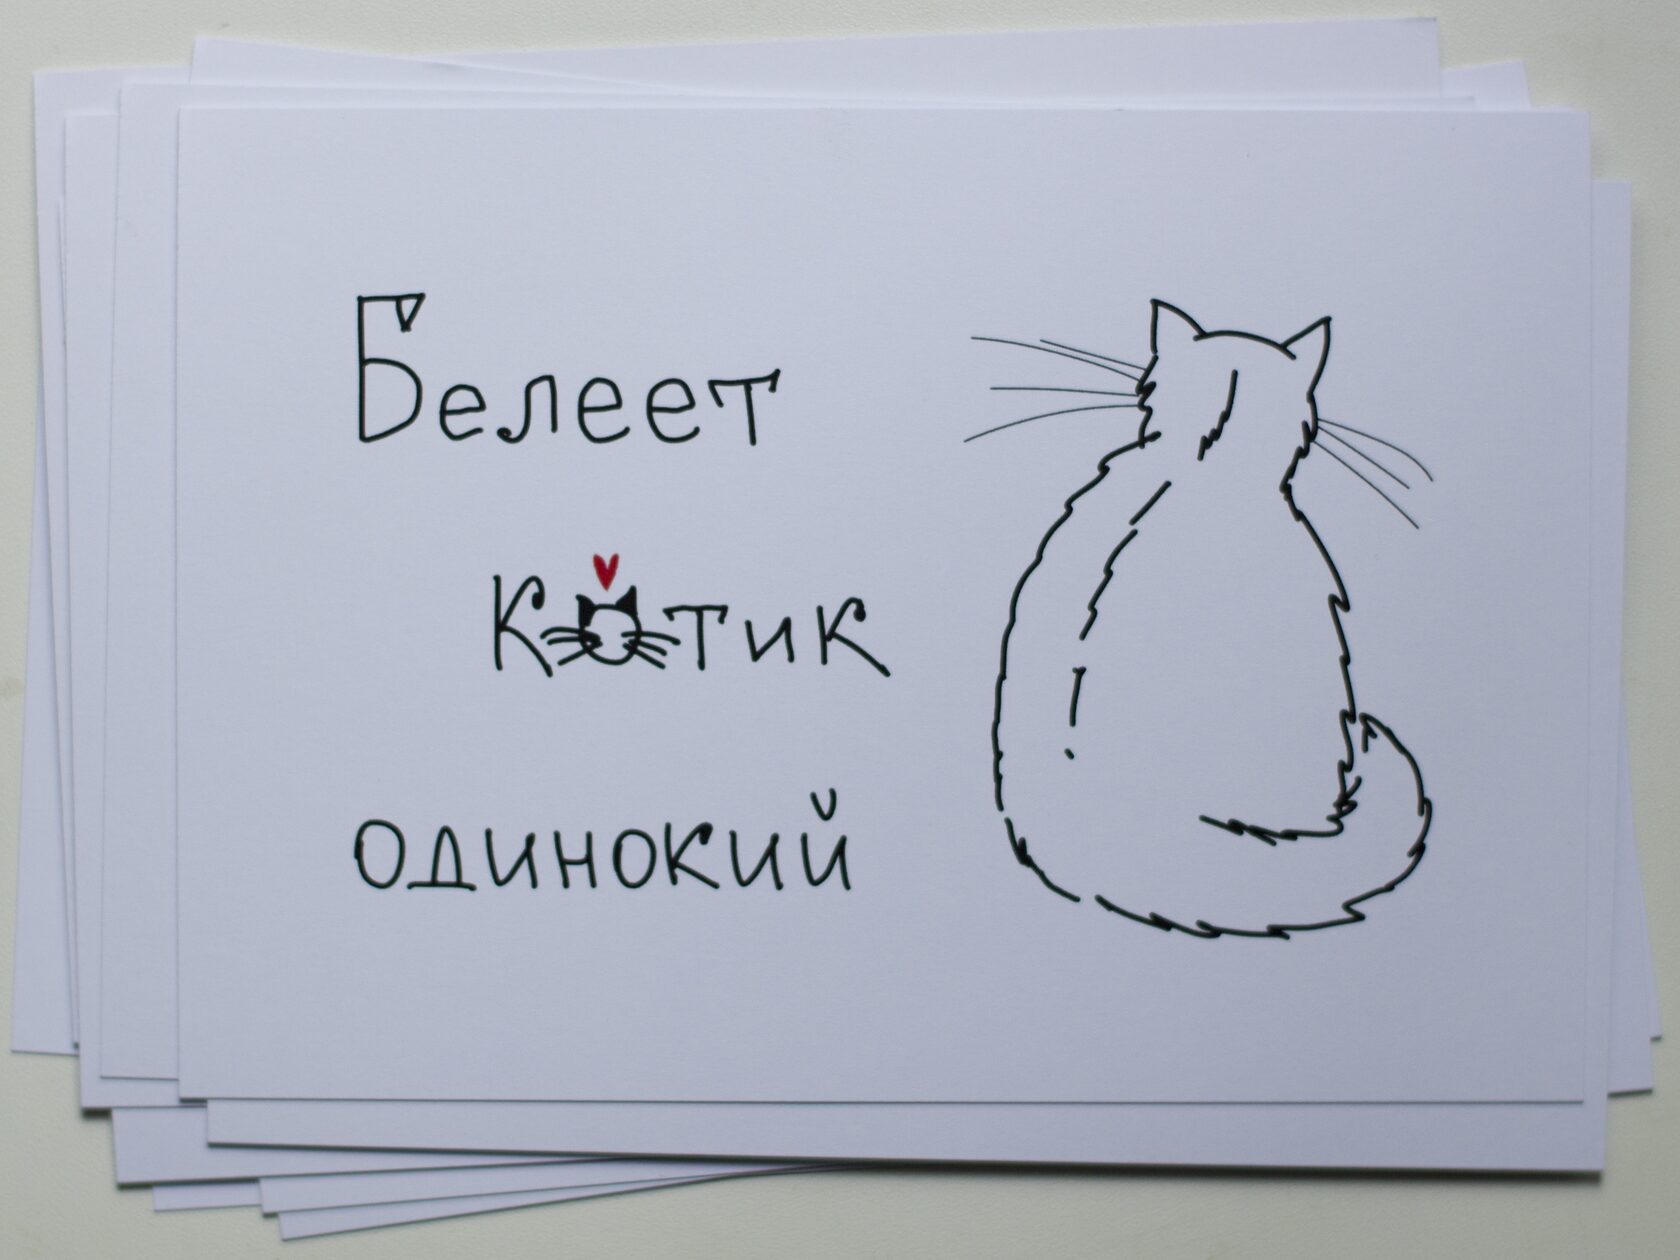 Белеет
котик
одинокий